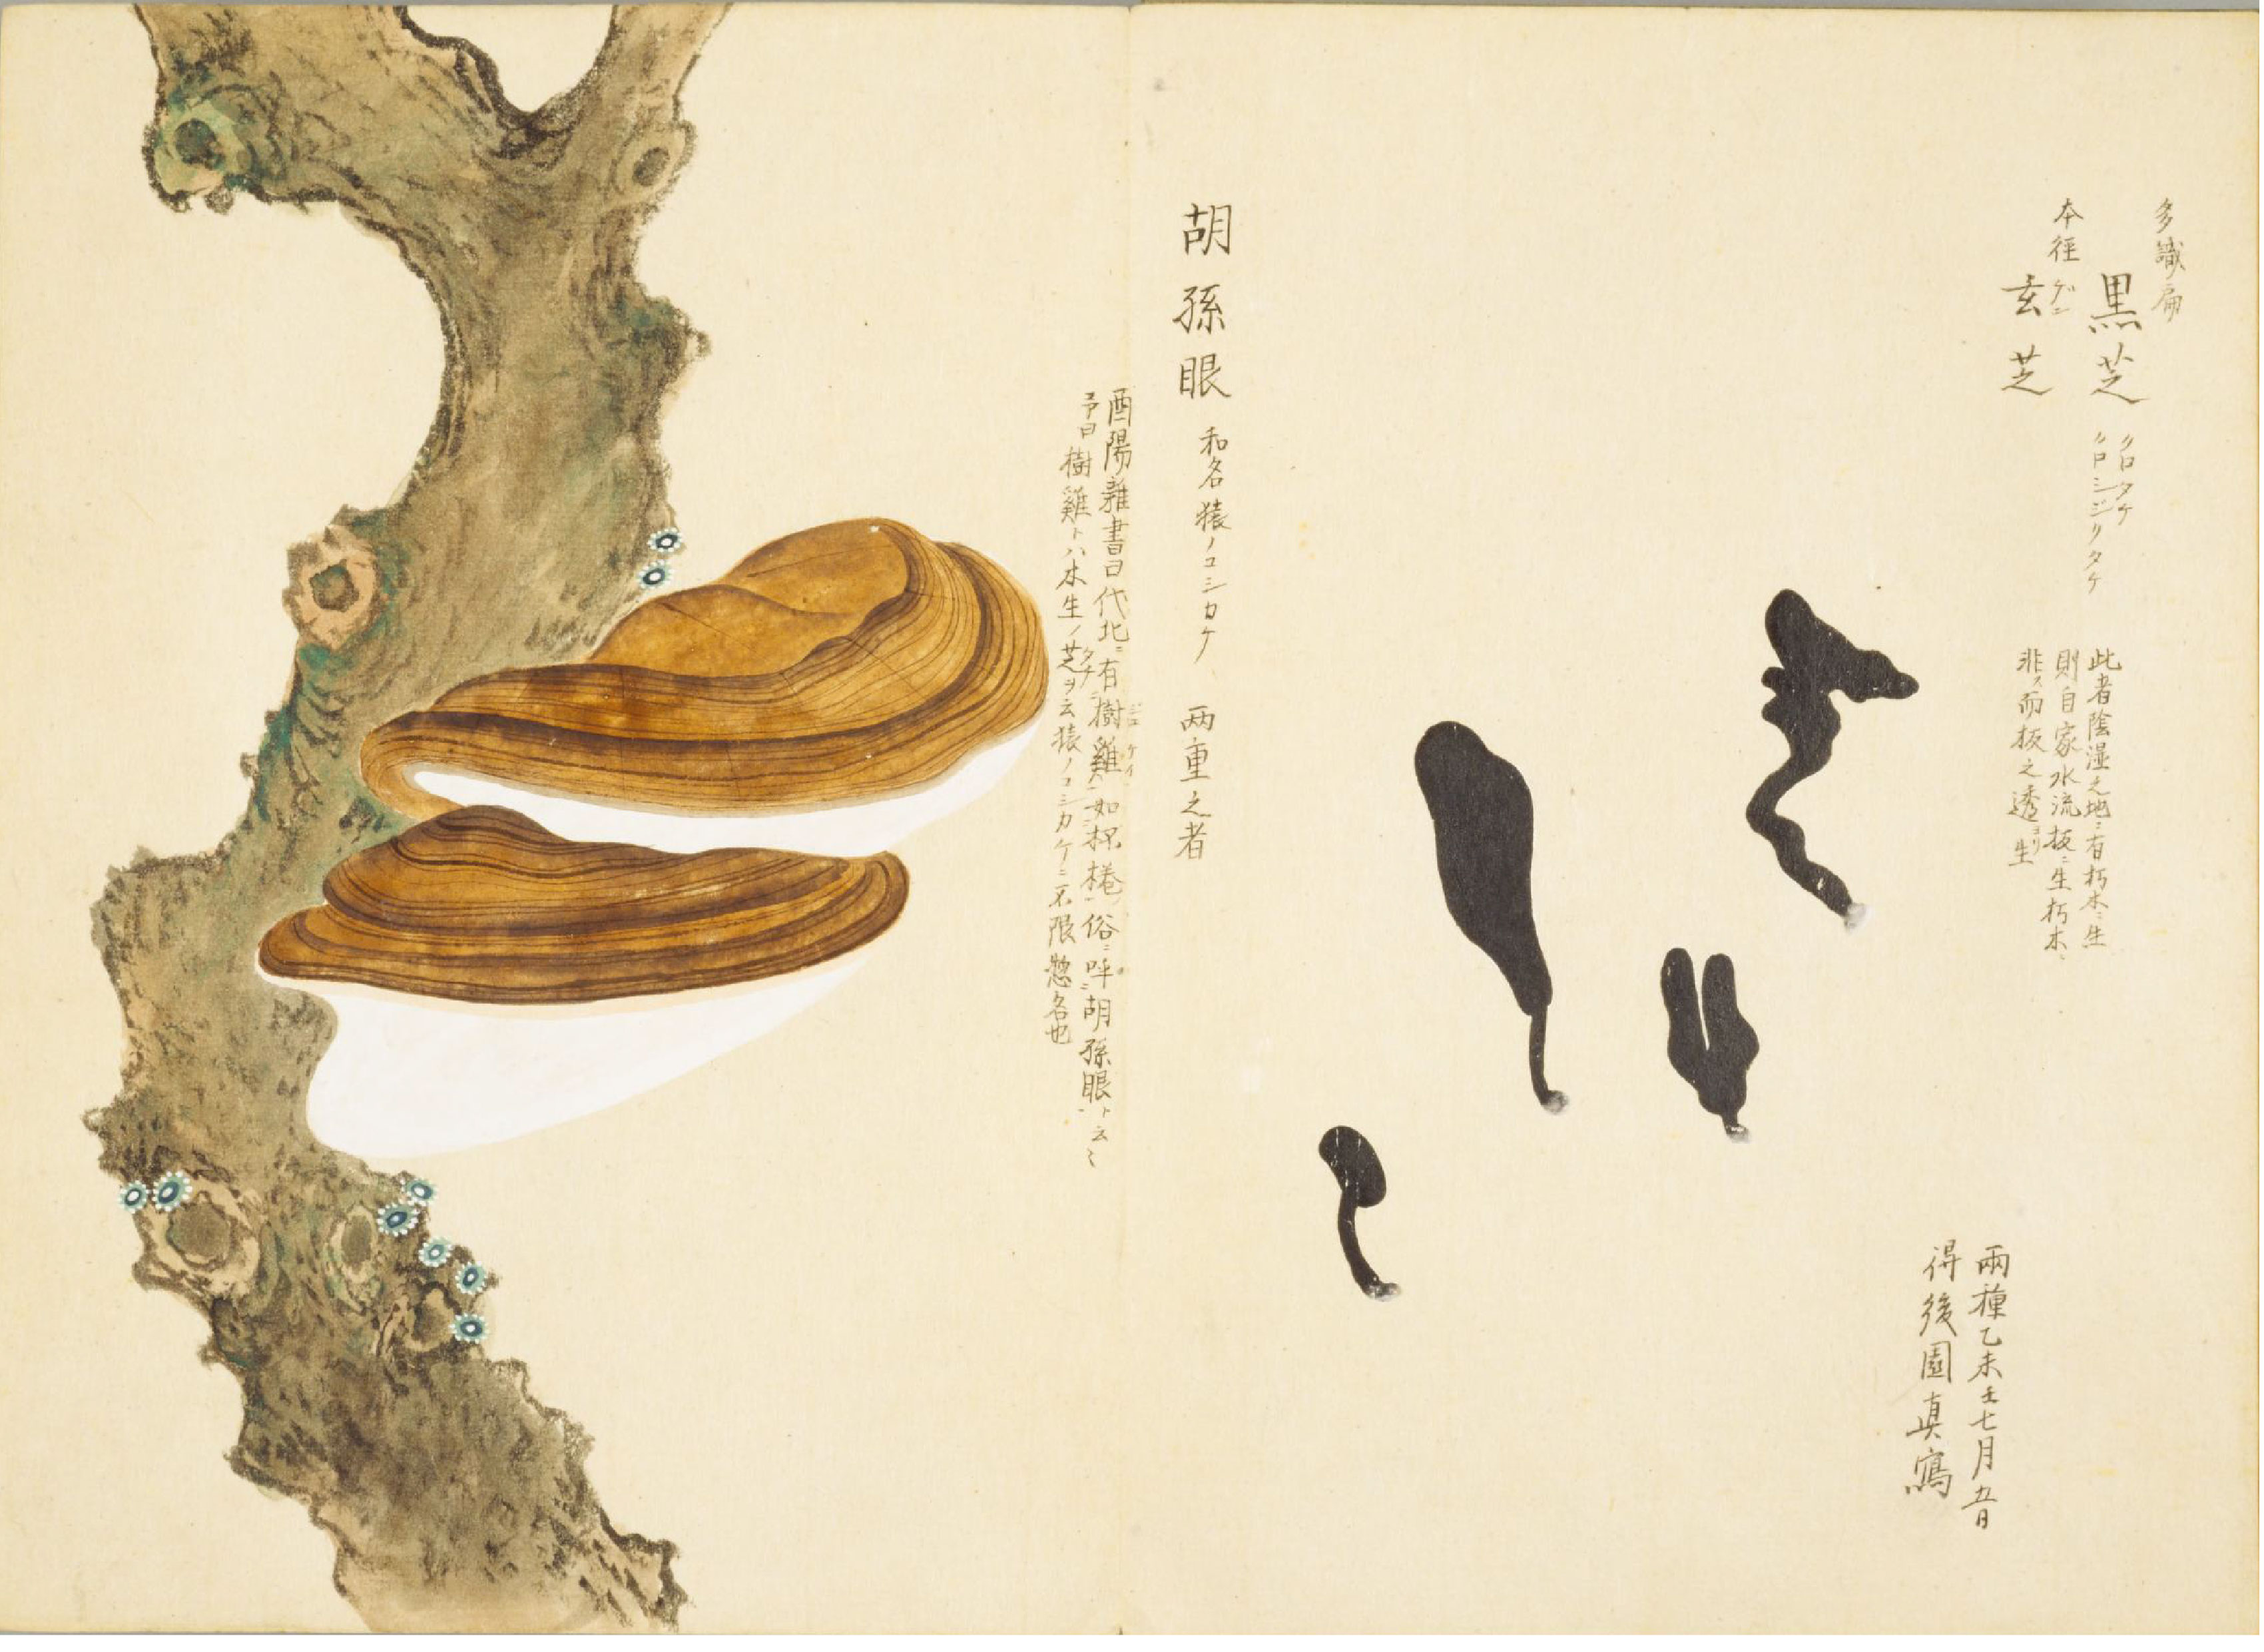 多識扁
黒芝
クロタケ
クロシジリタケ
本径
玄芝
ゲン
此者陰湿之地ニ有朽木ニ生
則自家水流抜ニ生朽木ニ
非ス而板之透ヨリ生
兩種乙未壬七月五日
得後園真寫
胡孫眼 和名猿ノコシカケ 両重之者
酉陽雜書曰代北ニ有樹雞如杯棬俗ニ呼胡孫眼ト云々
予曰樹雞トハ木生ノ芝ヲ云猿ノコシカケニ不限惣名也